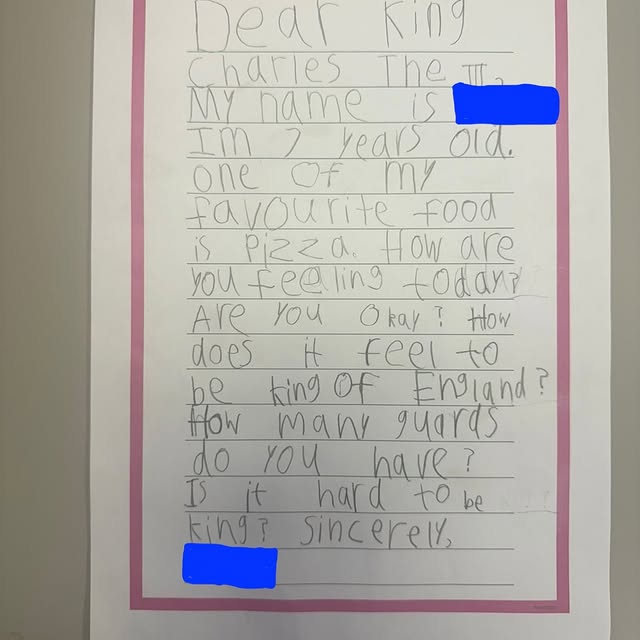 Dear King
Charles The III,
My name is
Im 7 years old.
one of my
favourite food
is pizza. How are
you feeling today?
Are you okay? How
does it feel to
be king of England?
How many guards
do you have?
Is it hard to be
king? Sincerely,